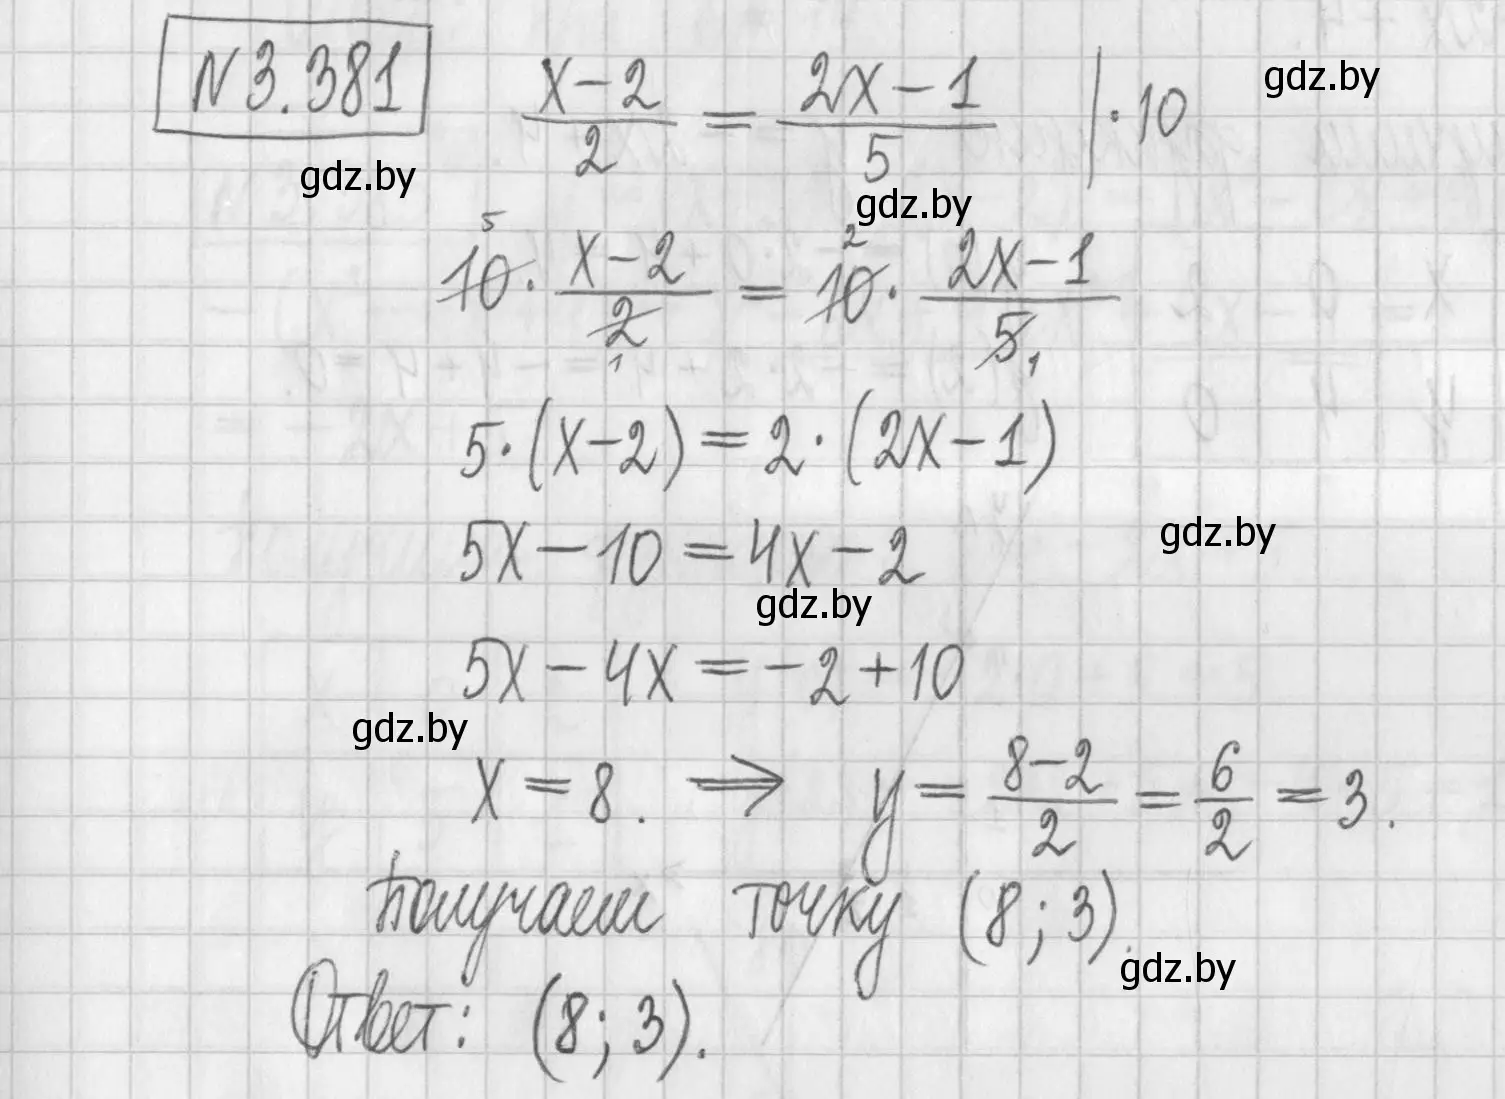 N 3.381
(x-2)/2 = (2x-1)/5 | · 10
gdz.by
gdz.by
gdz.by
10⁵ · (x-2)/2₁ = 10² · (2x-1)/5₁
5·(x-2) = 2·(2x-1)
5x-10 = 4x-2
gdz.by
gdz.by
5x-4x = -2+10
gdz.by
x = 8. ⇒ y = (8-2)/2 = 6/2 = 3.
Получаем точку (8; 3).
gdz.by
Ответ: (8; 3).